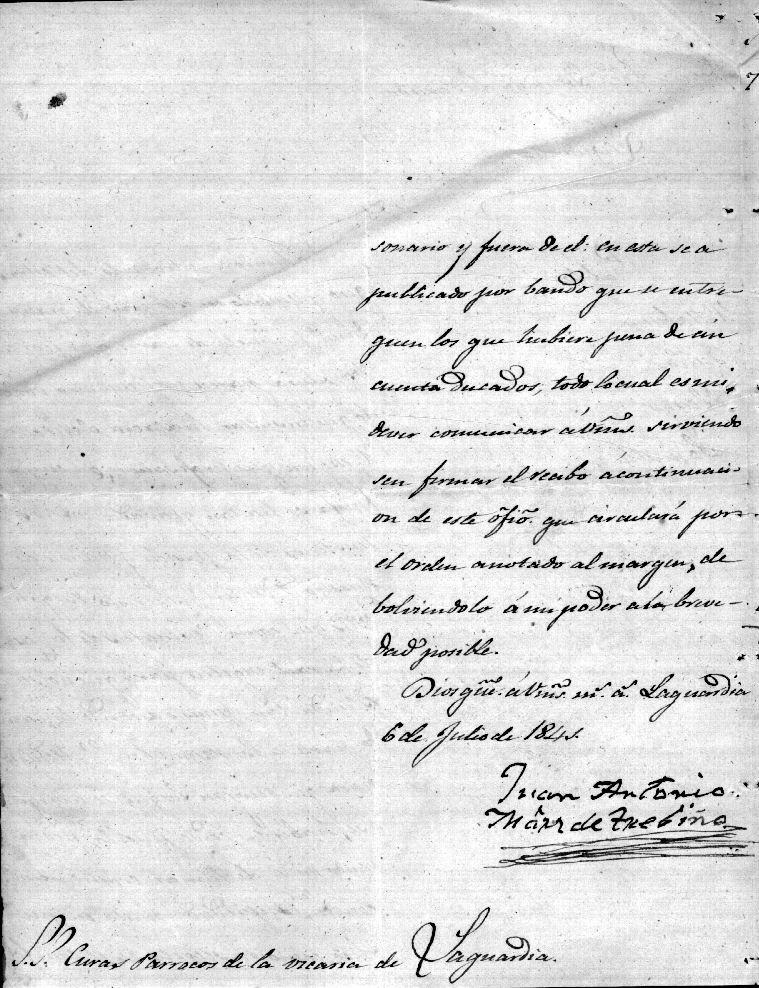 sonario y fuera de el: en esta se a
publicado por bando que se entre-
guen los que hubiere pena de cin
cuenta ducados, todo lo cual es mi
dever comunicar á Vms. sirviendo
sen firmar el recibo á continuaci-
on de este ofio. que circulará por
el orden anotado al margen, de
bolviendolo á mi poder a la breve-
dad posible.
Dios gue. á Vms. ms. as. Laguardia
6 de Julio de 1841.
Juan Antonio
Marz de Trebiño
S.S. Curas Parrocos de la vicaria de Laguardia.